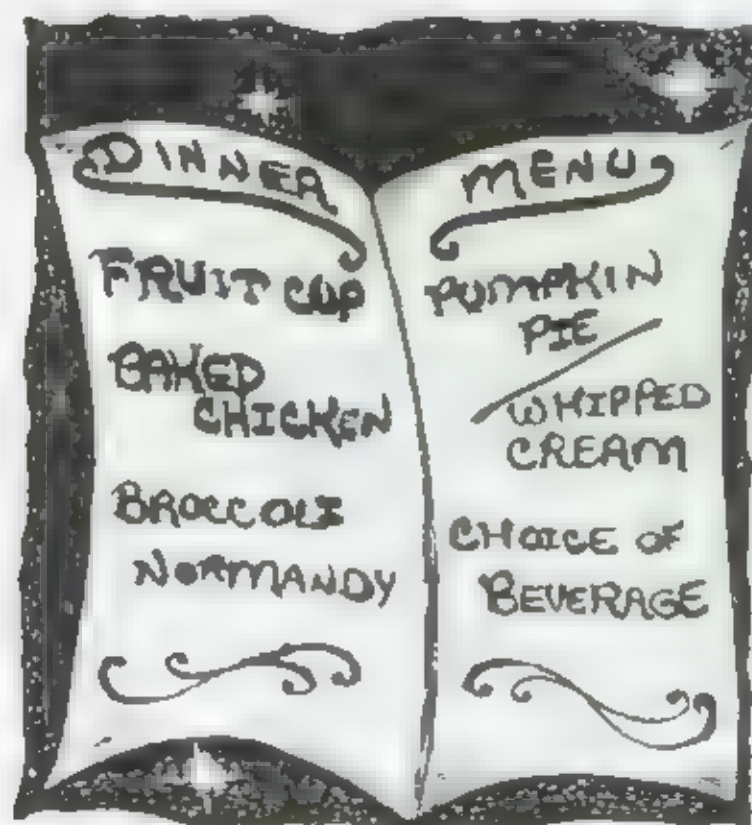 DINNER
FRUIT CUP
BAKED
CHICKEN
BROCCOLI
NORMANDY
MENU
PUMPKIN
PIE
WHIPPED
CREAM
CHOICE OF
BEVERAGE